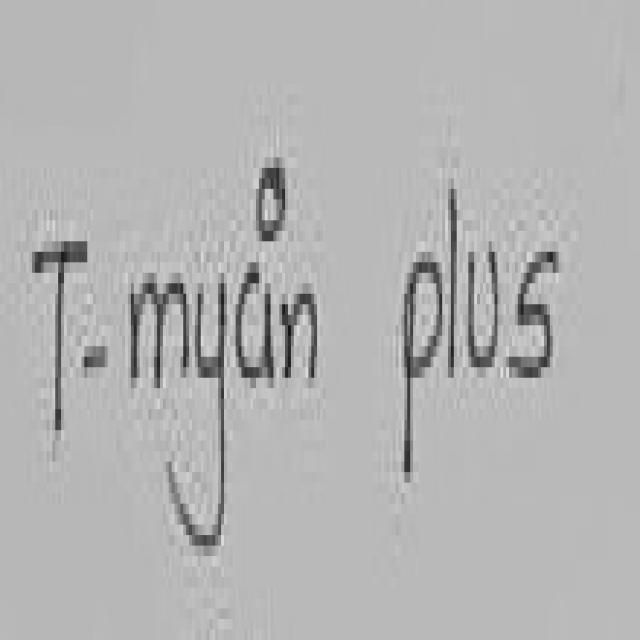 T-myån plus